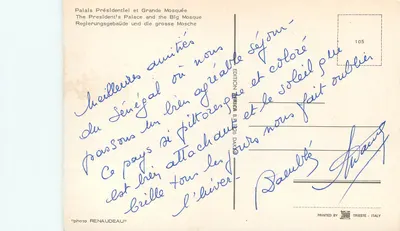 Palais Présidentiel et Grande Mosquée
The President's Palace and the Big Mosque
Regierungsgebäude und die grosse Mosche
105
Meilleures amitiés
du Sénégal où nous
passons un bien agréable séjour-
Ce pays si pittoresque et coloré
est bien attachant et le soleil qui
brille tous les jours nous fait oublier
l'hiver-
EDITION
DAKAR
"photo RENAUDEAU"
PRINTED BY
TRIESTE - ITALY